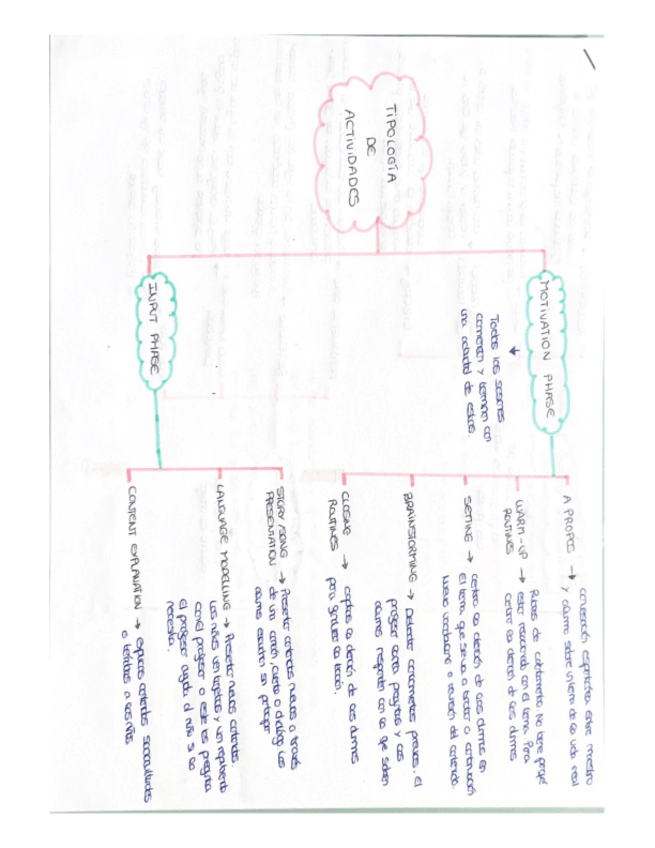 TIPOLOGÍA
DE
ACTIVIDADES
MOTIVATION PHASE
Todas las sesiones
comienzan y terminan con
una actividad de estas.
A PROPOS → conversación espontánea entre maestro
y alumno sobre un tema de la vida real
WARM-UP → Rutinas de calentamiento. No tiene porqué
ROUTINES estar relacionado con el tema. Para
centrar la atención de los alumnos
SETTING → centra la atención de los alumnos en
el tema que se va a tratar a continuación
Nuevo vocabulario o revisión del contenido.
BRAINSTORMING → Detectar conocimientos previos. El
profesor hace preguntas y los
alumnos responden con lo que saben
CLOSING → captar la atención de los alumnos
ROUTINES para finalizar la lección.
INPUT PHASE
STORY/SONG → Presentar contenidos nuevos a través
PRESENTATION de una canción, cuento o diálogo. Los
alumnos escuchan sin participar
LANGUAGE MODELLING → Presentar nuevos contenidos.
Los niños ven tarjetas y van repitiendo
con el profesor o este les pregunta
El profesor ayuda al niño si lo
necesita.
CONTENT EXPLANATION → explicar contenidos socioculturales
o temáticos a los niños